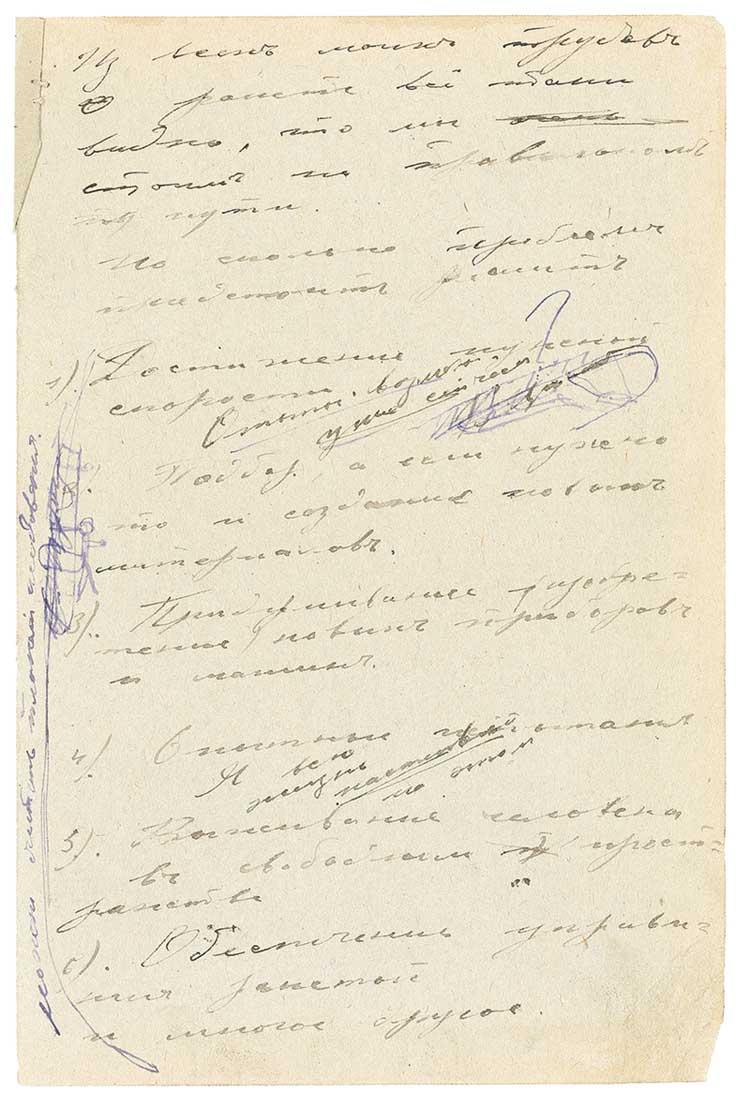 Из всехъ моихъ трудовъ
о ракете всё таки
видно, что мы
стоимъ на правильномъ
пути.
Но сколько проблемъ
предстоитъ решить
1) Достижение нужной
скорости
Опыты
уже сейчас
Подбор, а если нужно
то и создание новыхъ
материаловъ.
3). Придумывание изобре-
тение новыхъ приборовъ
и машинъ.
4). Опытные испытания
Я всю
жизнь настаивал
на этом
5). Выживание человека
въ свободном прост-
ранстве
6). Обеспечение управле-
ния ракетой
и многое другое.